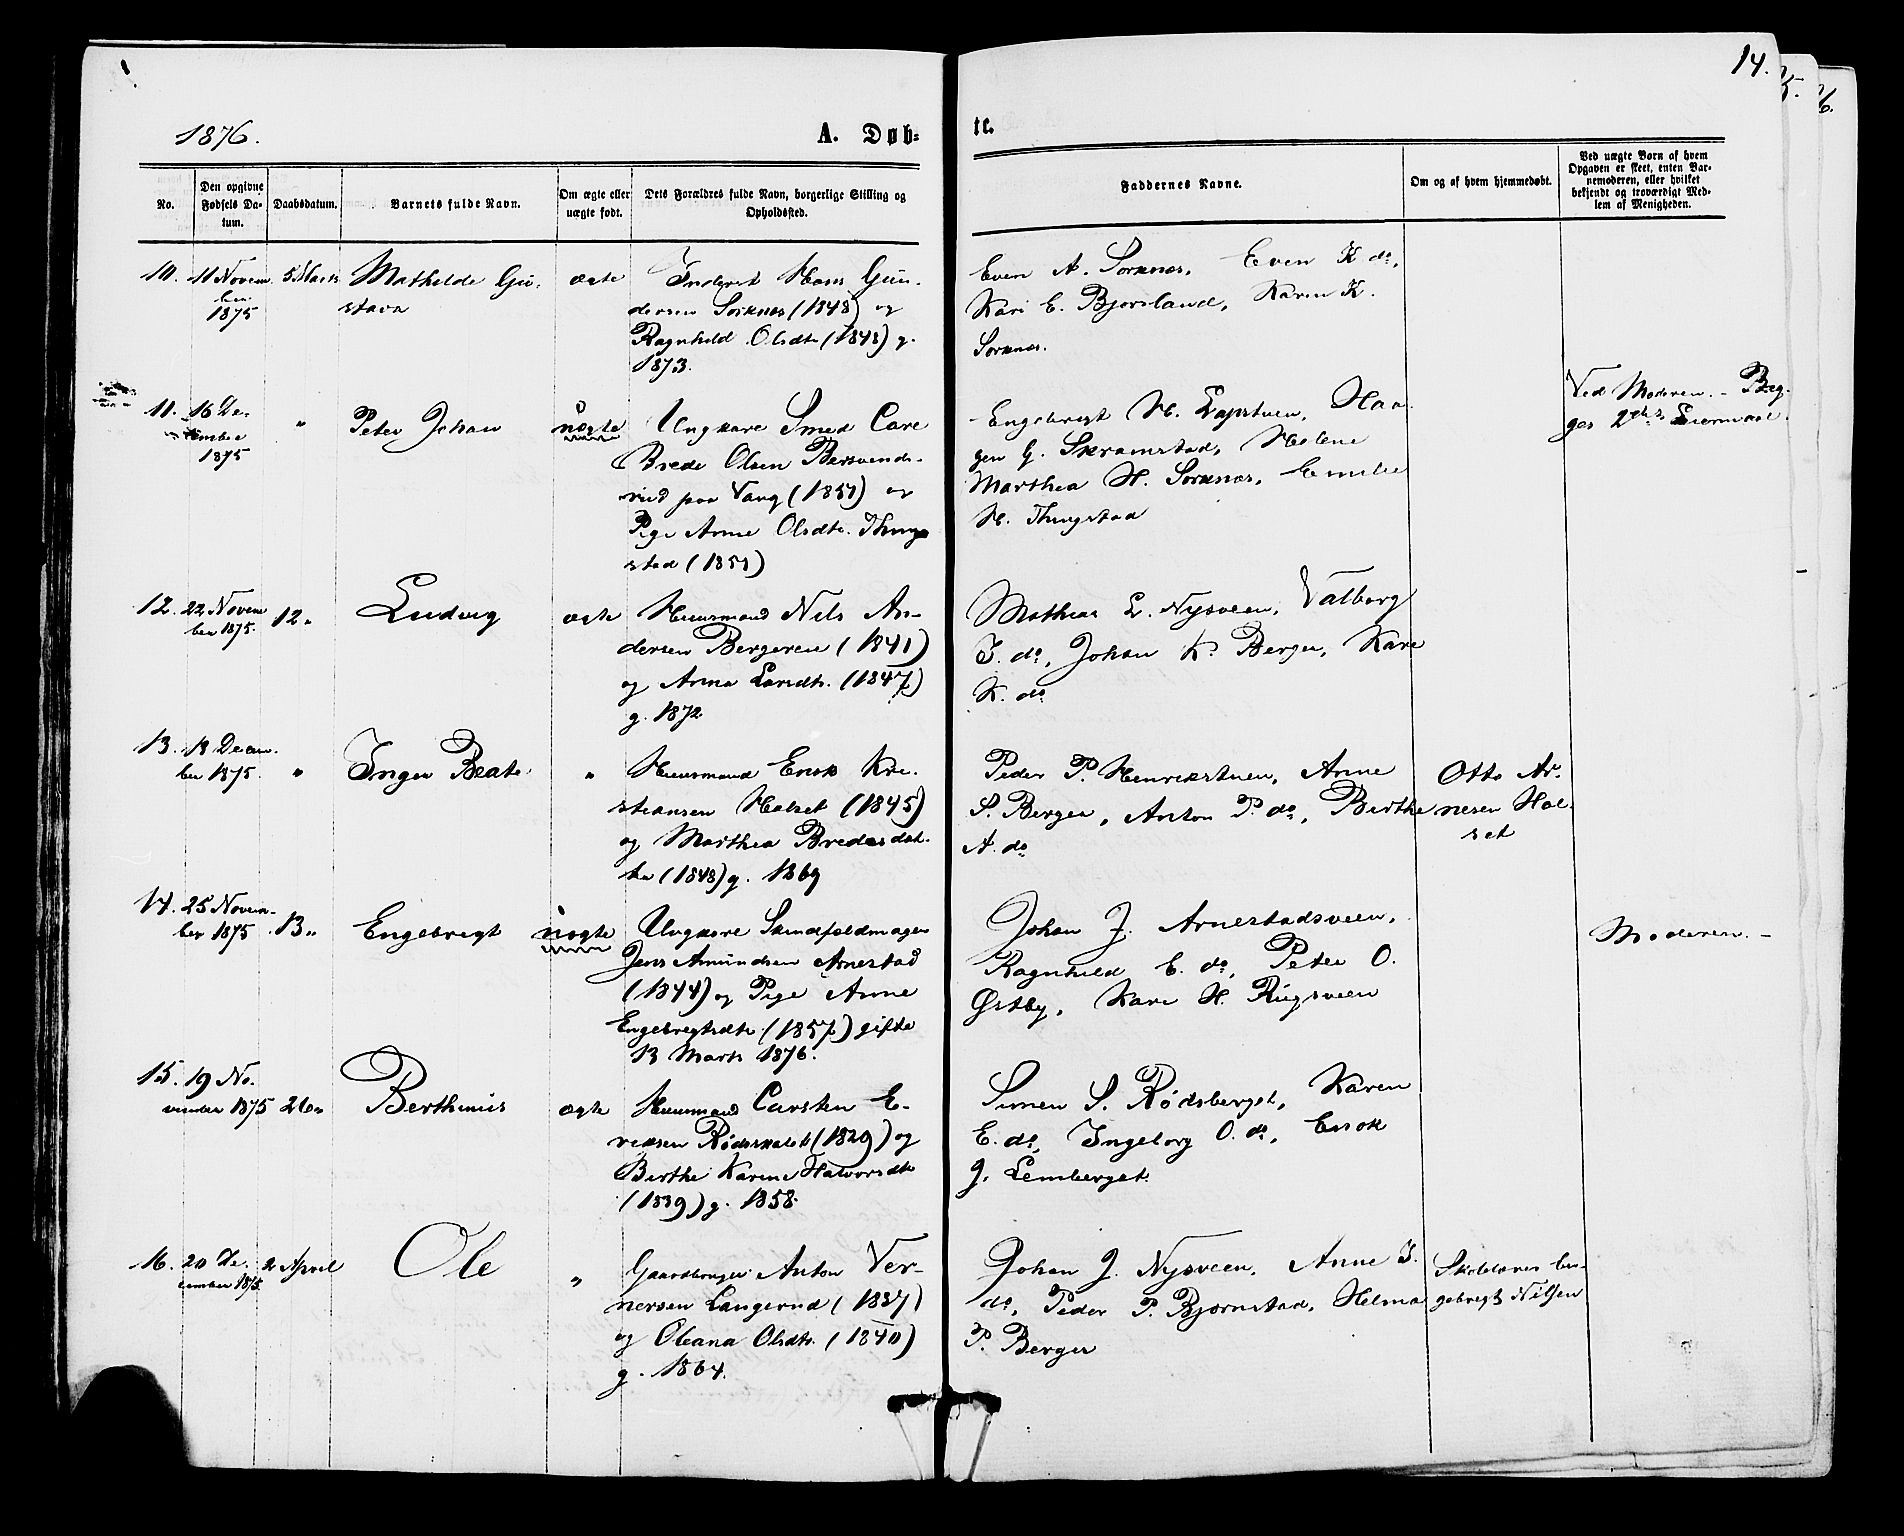 14.
15.
16.
1876.
A. Døb-
te.
No.
Den opgivne
Fødsels Da-
tum.
Daabsdatum.
Barnets fulde Navn.
Om ægte eller
uægte født.
Dets Forældres fulde Navn, borgerlige Stilling og
Opholdssted.
Faddernes Navne.
Om og af hvem hjemmedøbt.
Ved uægte Barn af hvem
Opgaven er skeet, enten Bar-
nemoderen, eller hvilket
bekjendt og troværdigt Med-
lem af Menigheden.
10.
11 Novem
ber
1875
5 Marts
Mathilde Gu-
stava
ægte
Inderst Hans Gun-
dersen Sorknes (1848) og
Ragnhild Olsdtr (1848) g.
1873.
Even A. Sorknes, Even K do,
Kari E. Bjorsland, Karen K.
Sorknes.
11.
16 De-
cember
1875
"
Peter Johan
uægte
Ungkare Smed Carl
Brede Olsen Bersvends-
rud paa Vang (1851) og
Pige Anne Olsdtr. Thing-
stad (1851)
Engebregt H. Løpstuen, Haa-
gen G. Skramstad, Helene
Marthea H. Sorknes, Emilie
H. Thingstad
Ved Moderen. - Beg-
ges 2det Leiermaal.
12.
22 Novem
ber 1875.
12 "
Ludvig
ægte
Huusmand Nils An-
dersen Bergeren (1841)
og Anna Larsdtr. (1847)
g. 1872
Mathias L. Nysveen, Valborg
I. do, Johan K. Berger, Kare
K. do
13.
18 Decem-
ber 1875.
"
Inger Beate
"
Huusmand Enok Kri-
stiansen Holset (1845)
og Marthea Bredesdat-
ter (1848) g. 1869
Peder P. Henrikstuen, Anne
S. Berger, Anton P. do, Birthe
A. do
Otto Ar-
nesen Hol-
set
14.
25 Novem-
ber 1875
13 "
Engebregt
uægte
Ungkare Skindfeldmager
Jens Amundsen Arnestad
(1844) og Pige Anne
Engebregtsdtr (1857) gifte
13 Marts 1876.
Johan J. Arnestadsveen,
Ragnhild E. do, Peter O.
Østby, Kari H. Rugsveen
Moderen. -
15.
19 No-
vember 1875
26 "
Berthinius
ægte
Huusmand Carsten E-
riksen Rødsholet (1829) og
Birthe Karine Halvorsdtr
(1839) g. 1858.
Simen S. Rødsberget, Karen
E. do, Ingeborg O. do, Enok
J. Lemberget.
16.
20 De-
cember 1875.
2 April
Ole
"
Gaardbruger Anton Ver-
nersen Langerud (1837)
og Oleana Olsdtr. (1840)
g. 1864.
Johan J. Nysveen, Anne I.
do, Peder P. Bjørnstad, Helma
P. Berger
Skolelærer En-
gebregt Nilsen